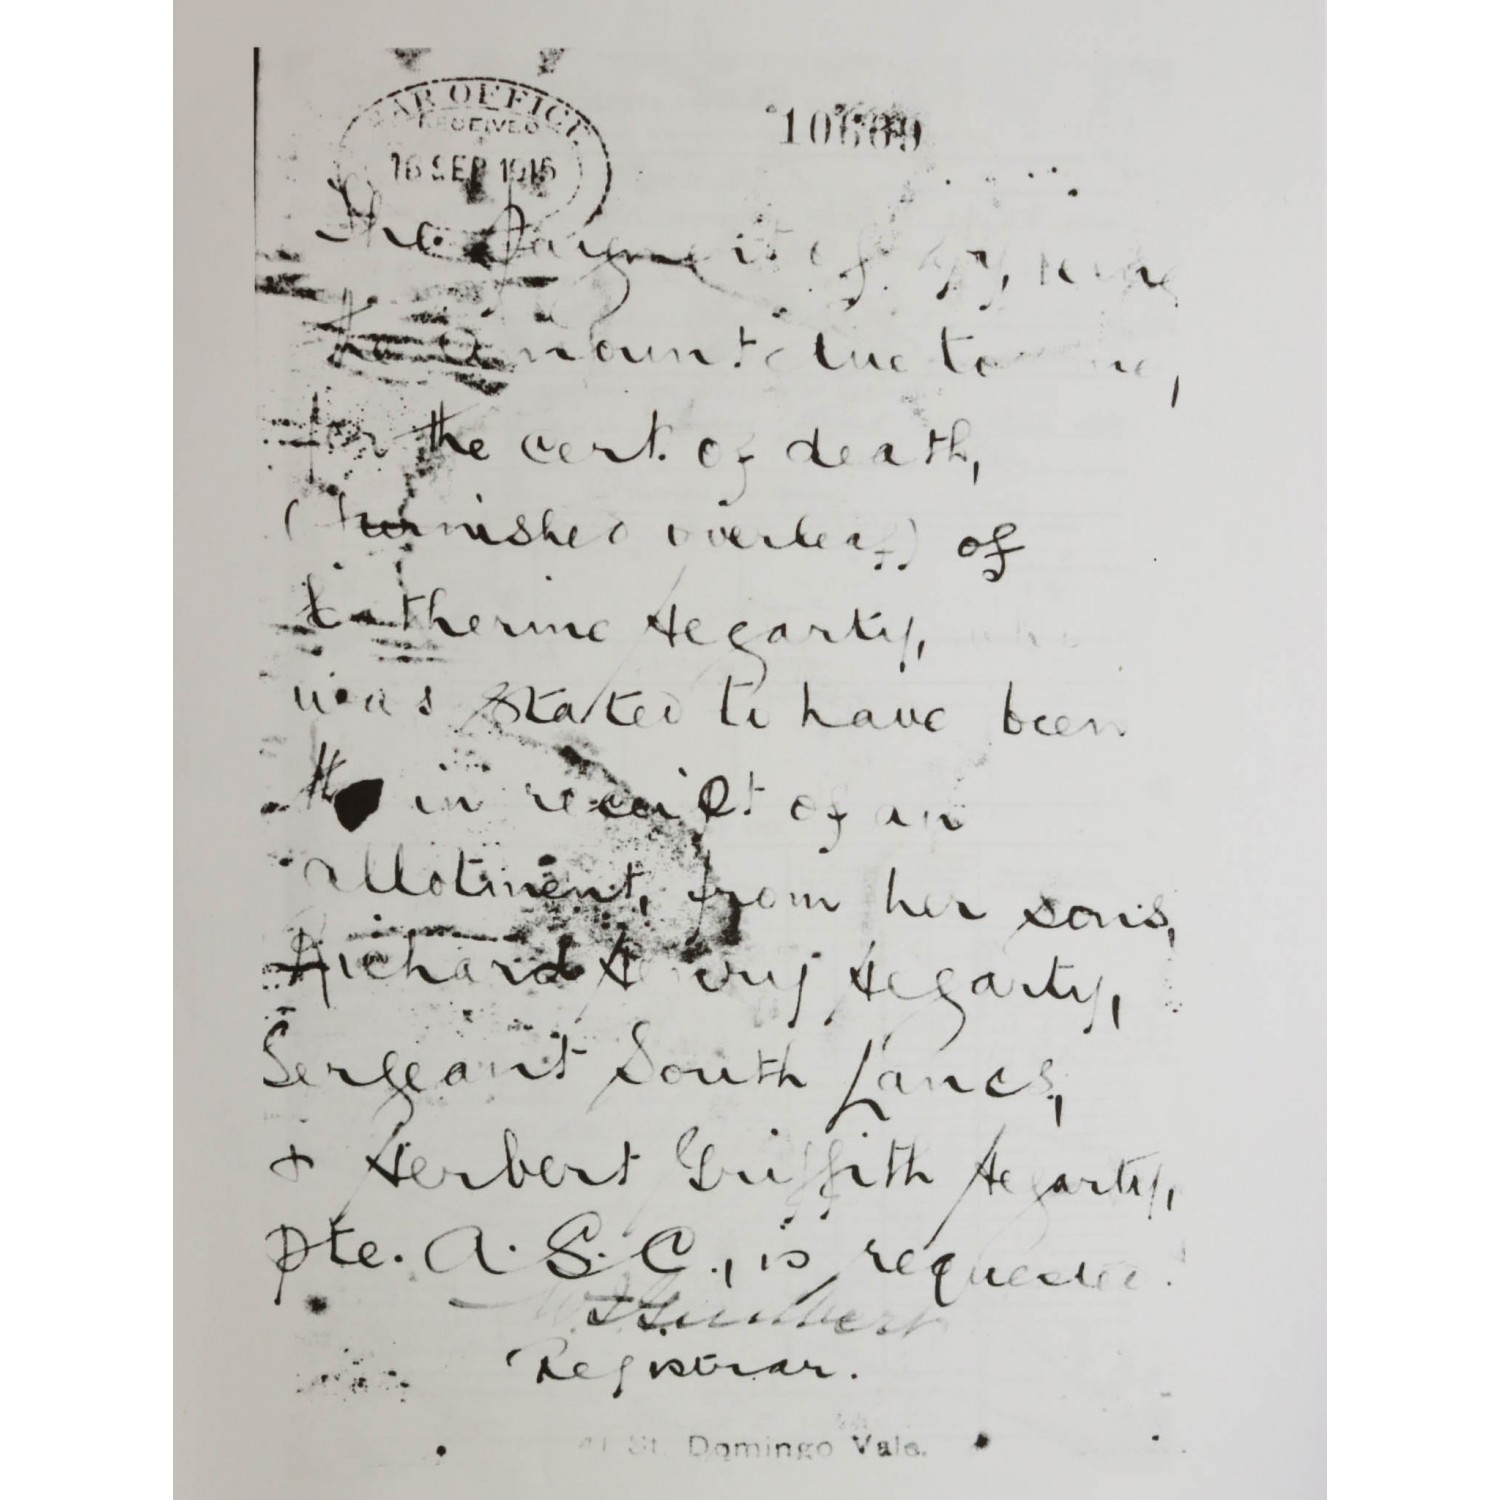 WAR OFFICE
RECEIVED
16 SEP 1915
The Payment of
the amount due to me,
for the cert. of death,
(furnished overleaf) of
Catherine Hegarty, who
was stated to have been
in receipt of an
allotment, from her sons,
Richard Henry Hegarty,
Sergeant South Lancs,
+ Herbert Griffith Hegarty,
pte. A.S.C., is requested.
Registrar.
41 St. Domingo Vale.